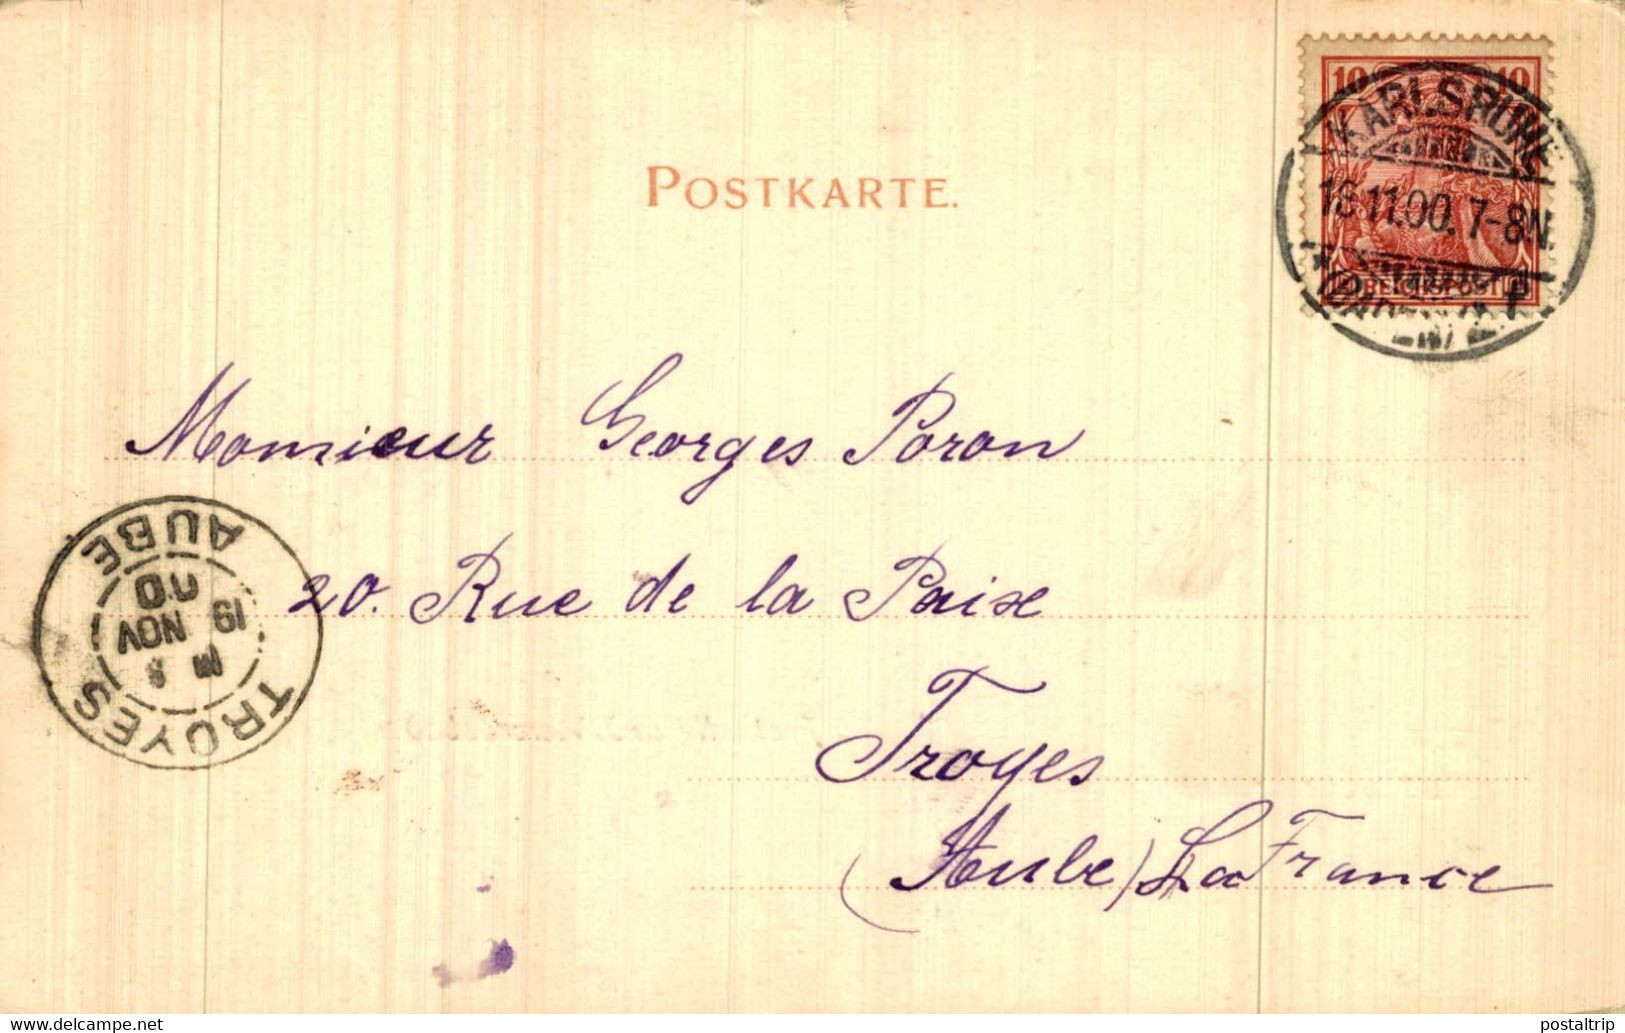 10 10
KARLSRUHE
16.11.00. 7-8N.
REICHSPOST
POSTKARTE.
Monsieur Georges Poron
20. Rue de la Paix
Troyes
(Aube) La France
TROYES
19 NOV
00
AUBE
www.delcampe.net
postaltrip